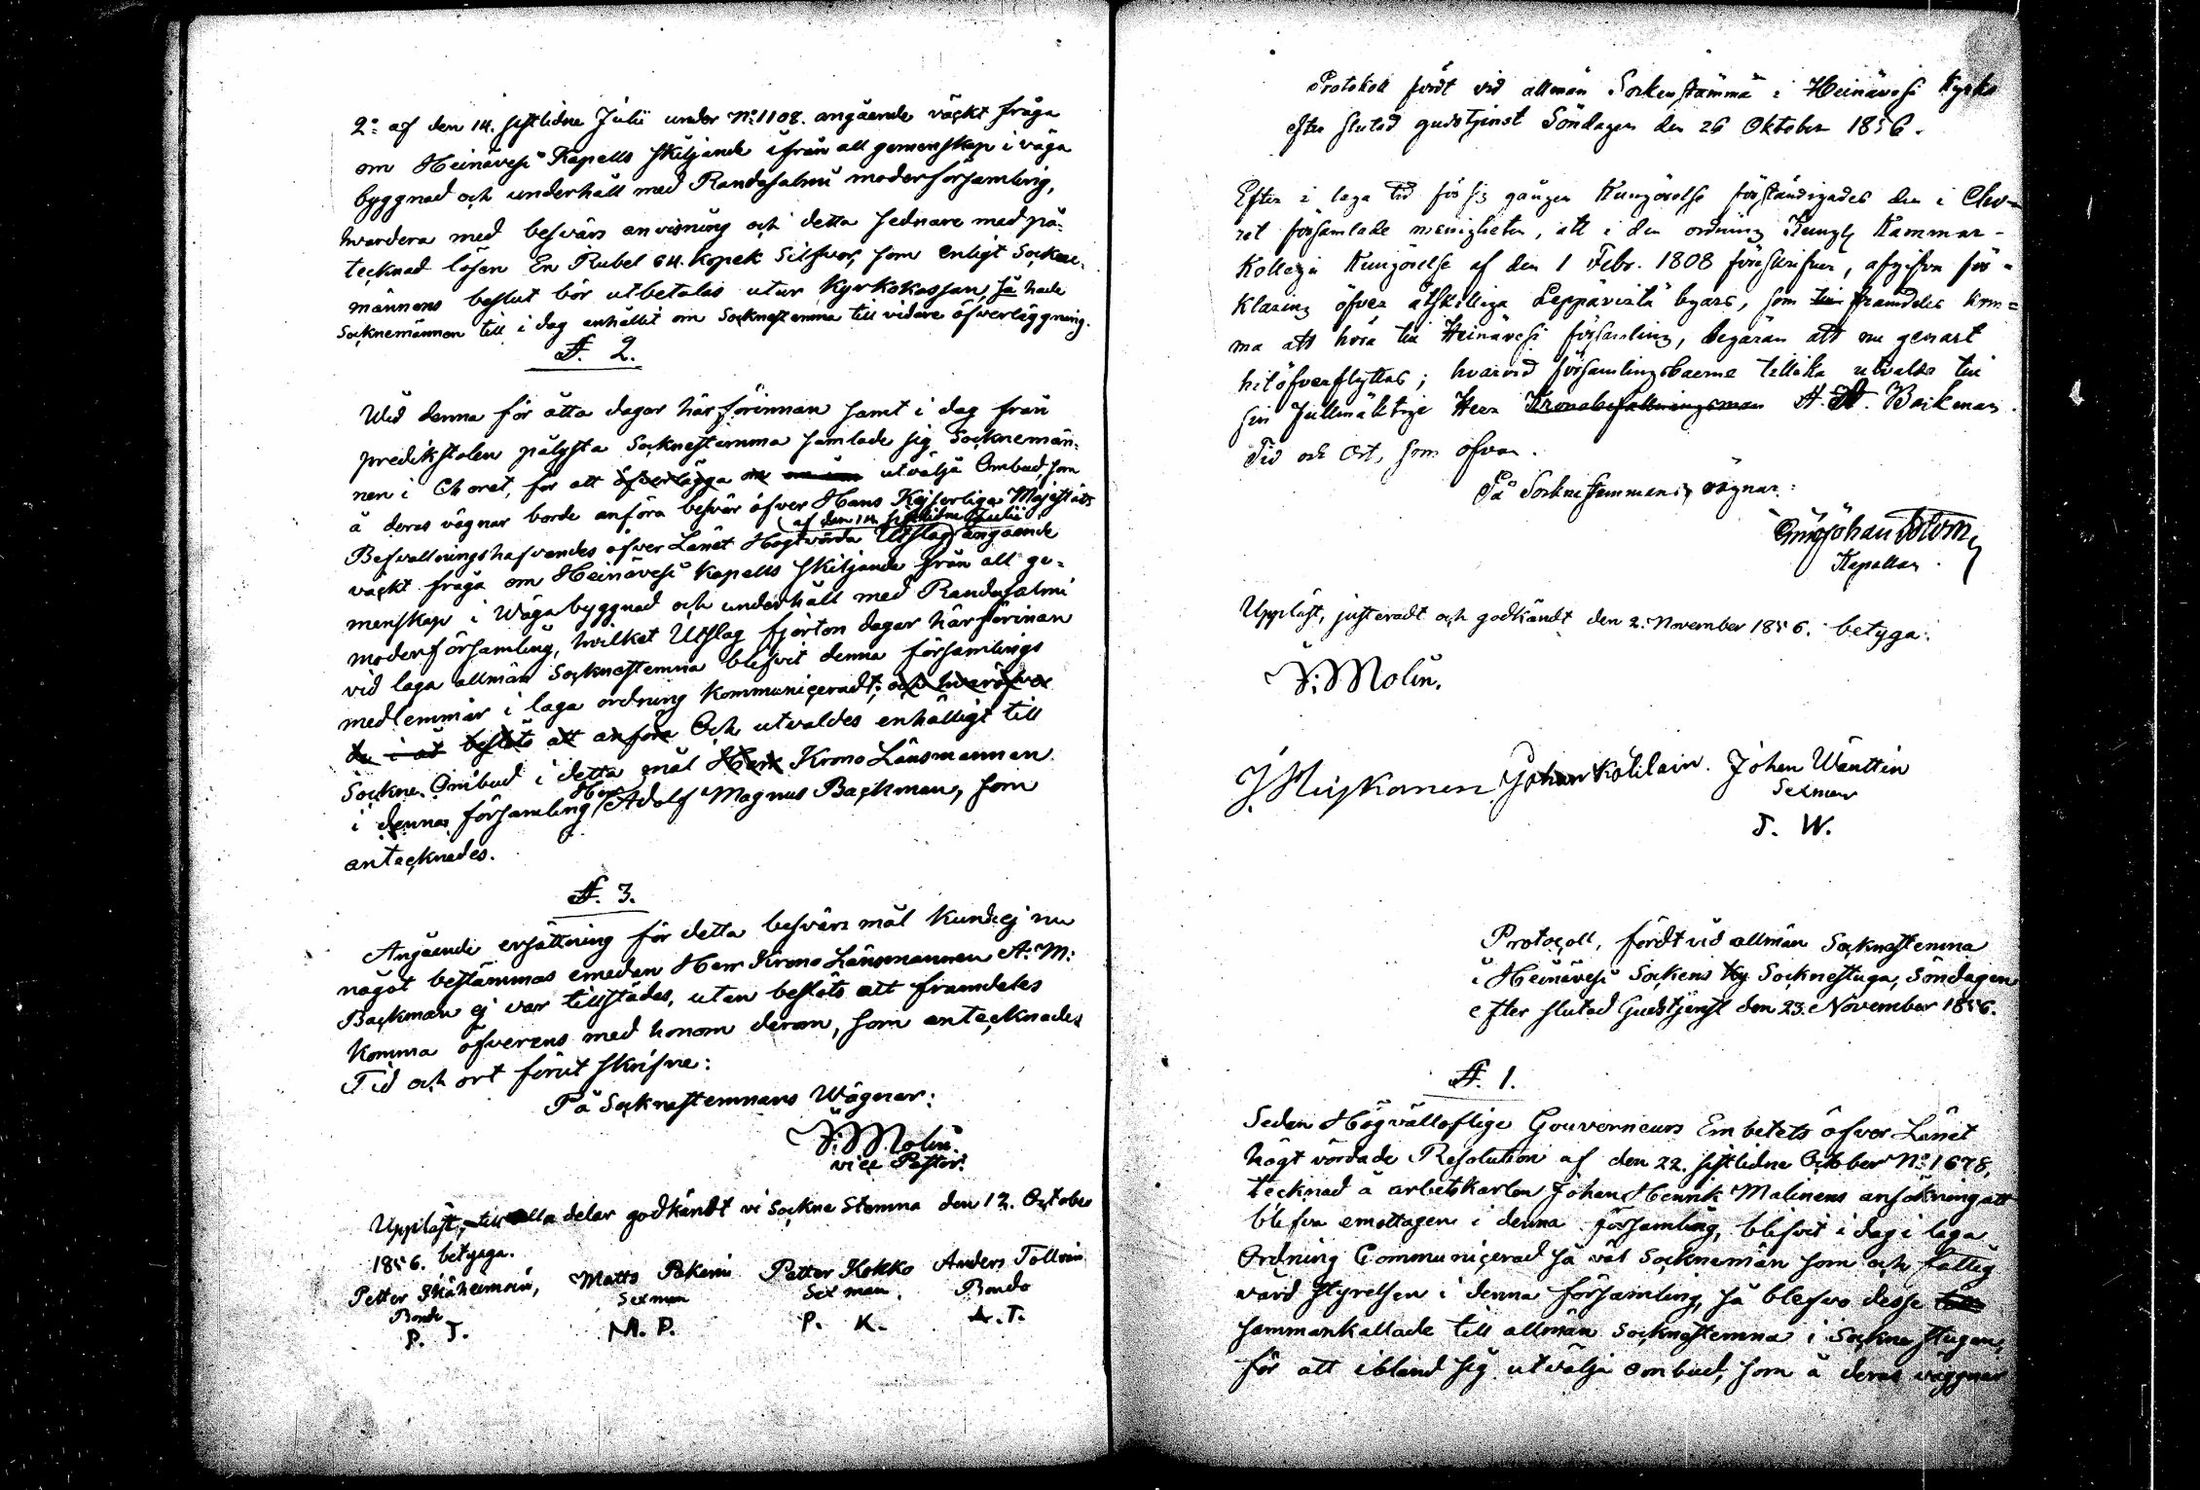 2:o af den 14. sistlidne Julii under No: 1108. angående väckt fråga
om Heinävesi Kapells skiljande ifrån all gemenskap i väga
byggnad och underhåll med Randasalmi moderförsamling,
hvardera med besvärs anvisning och detta sednare med på-
tecknad lösen En Rubel 64. Kopek Silfver, som enligt Sockne-
männens beslut bör utbetalas utur Kyrkokassan, så hade
Socknemännen till i dag anhållit om Socknestemma till vidare öfverläggning.
§. 2.
Wid denna för åtta dagar härförinnan samt i dag från
predikstolen pålysta Socknestemma samlade sig Socknemän-
nen i Choret, för att öfverlägga om utvälja Ombud, som
å deras vägnar borde anföra besvär öfver Hans Kejserliga Majestäts
af den 14. sistlidne Julii
Befallningshafvandes öfver Länet Högtvörda Utslag angående
väckt fråga om Heinävesi Kapells skiljande från all ge-
menskap i Wägabyggnad och underhåll med Randasalmi
moderförsamling, hvilket Utslag fjorton dagar härförinnan
vid laga allmän Socknestemma blifvit denna församlings
medlemmar i laga ordning kommuniceradt; och hvaröfver
de i så beslöts att anföra Och utvaldes enhälligt till
Sockne Ombud i detta mål Herr Krono Länsmannen
Herr
i denna församling Adolf Magnus Backman, som
antecknades.
§. 3.
Angående ersättning för detta besvärs mål kunde ej nu
något bestämmas emedan Herr Krono Länsmannen A: M:
Backman ej var tillstädes, utan beslöts att framdeles
komma öfverens med honom derom, som antecknades
Tid och ort förut skrifne:
På Socknestemmans Wägnar:
F: Molin.
vice Pastor.
Uppläst, till alla delar godkändt vi Sockne Stemma den 12. October
1856. betyga.
Petter
Matts Pakarin
Petter Kokko
Anders
Bonde
Sexman
Sexman.
Bonde
P. T.
M. P.
P. K.
A. T.
Protokoll fördt vid allmän Sockenstämma i Heinävesi Kyrka
efter slutad gudstjenst Söndagen den 26 Oktober 1856.
Efter i laga tid för sig gången Kungörelse förständigades den i Cho-
ret församlade menigheten, att i den ordning Kungl. Kammar-
Kollegii Kungörelse af den 1 Febr. 1808 föreskrifver, afgifva för-
klaring öfver åtskilliga Leppävirta byars, som till framdeles kom-
ma att höra till Heinävesi församling, begäran att nu genast
hitöfverflyttas; hvarvid församlingsboerne tillika utvalde till
sin fullmäktige Herr Kronobefallningsman A. M. Backman.
Tid och Ort, som ofvan.
På Sockne Stemmans vägnar:
Johan
Kapellan.
Uppläst, justeradt och godkändt den 2. November 1856. betyga:
F: Molin.
Johan
Johan Wänttin
Sexman
J. W.
Protocoll, fördt vid allmän Socknestemma
i Heinävesi Sockens Ky Socknestuga, Söndagen
efter slutad Gudstjenst den 23. November 1856.
§. 1.
Sedan Högvälloflige Gouverneurs Embetets öfver Länet
högt vördade Resolution af den 22. sistlidne October No: 1678,
tecknad å arbetskarlen Johan Henrik Malinens ansökning att
blifva emottagen i denna församling, blifvit i dag i laga
Ordning Communicerad så väl Socknemän som och fattig
vård styrelsen i denna församling, så blefvo desse
sammankallade till allmän Socknestemma i Sockne stugan,
för att ibland sig utvälja ombud, som å deras väggnar